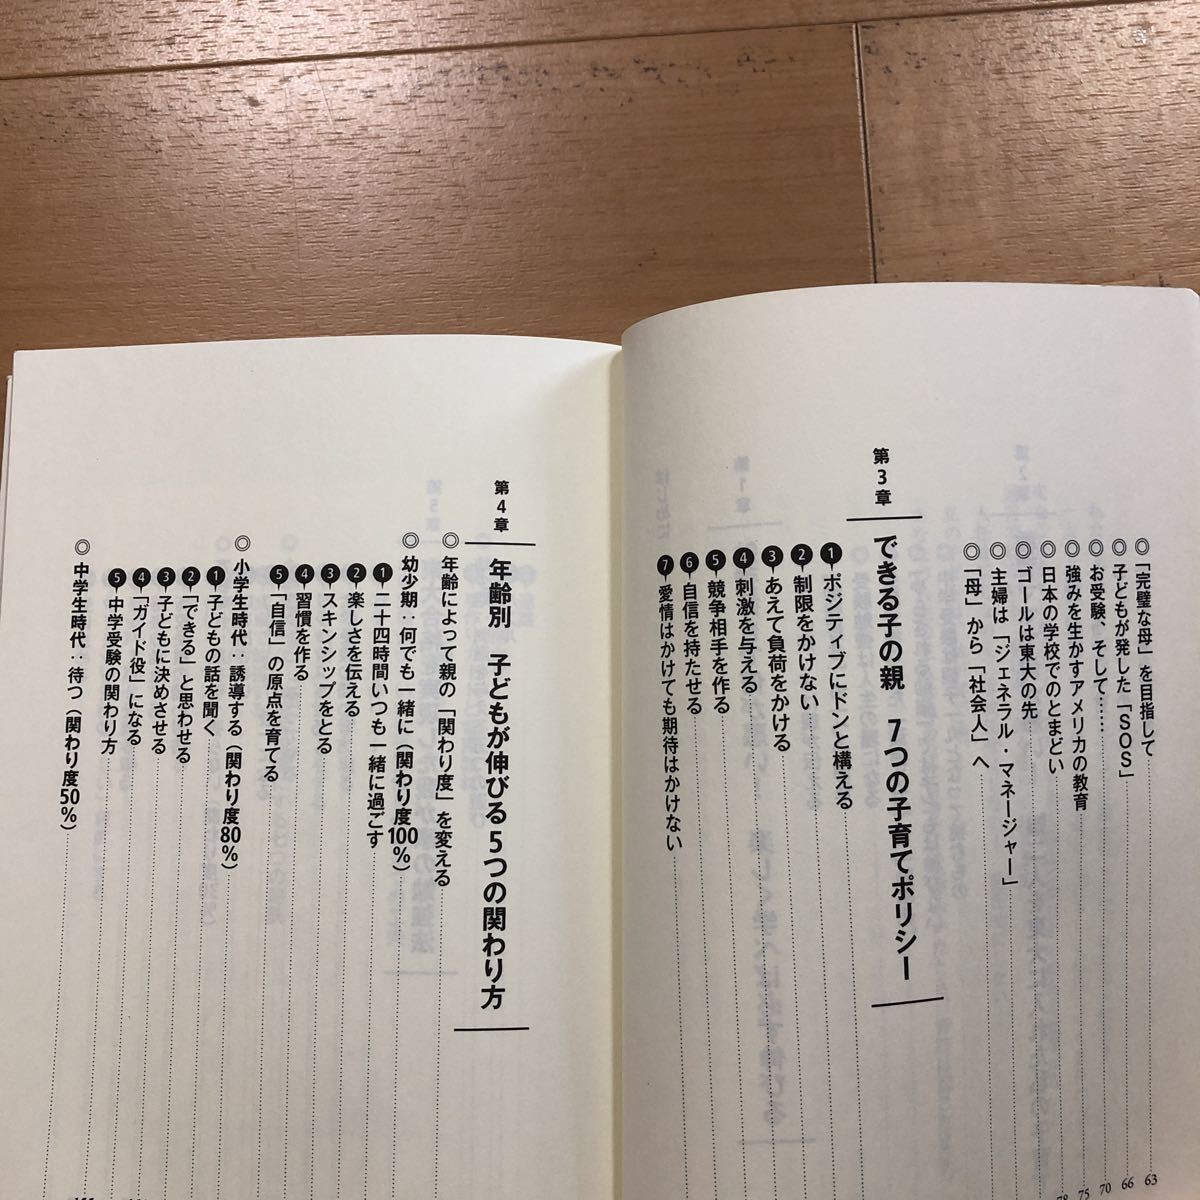 ◎「完璧な母」を目指して 63
◎子どもが発した「SOS」 66
◎お受験、そして…… 70
◎強みを生かすアメリカの教育 75
◎日本の学校でのとまどい 78
◎ゴールは東大の先
◎主婦は「ジェネラル・マネージャー」
◎「母」から「社会人」へ
第3章 できる子の親 7つの子育てポリシー
❶ポジティブにドンと構える
❷制限をかけない
❸あえて負荷をかける
❹刺激を与える
❺競争相手を作る
❻自信を持たせる
❼愛情はかけても期待はかけない
第4章 年齢別 子どもが伸びる5つの関わり方
◎年齢によって親の「関わり度」を変える
◎幼少期：何でも一緒に（関わり度100％）
❶二十四時間いつも一緒に過ごす
❷楽しさを伝える
❸スキンシップをとる
❹習慣を作る
❺「自信」の原点を育てる
◎小学生時代：誘導する（関わり度80％）
❶子どもの話を聞く
❷「できる」と思わせる
❸子どもに決めさせる
❹「ガイド役」になる
❺中学受験の関わり方
◎中学生時代：待つ（関わり度50％）